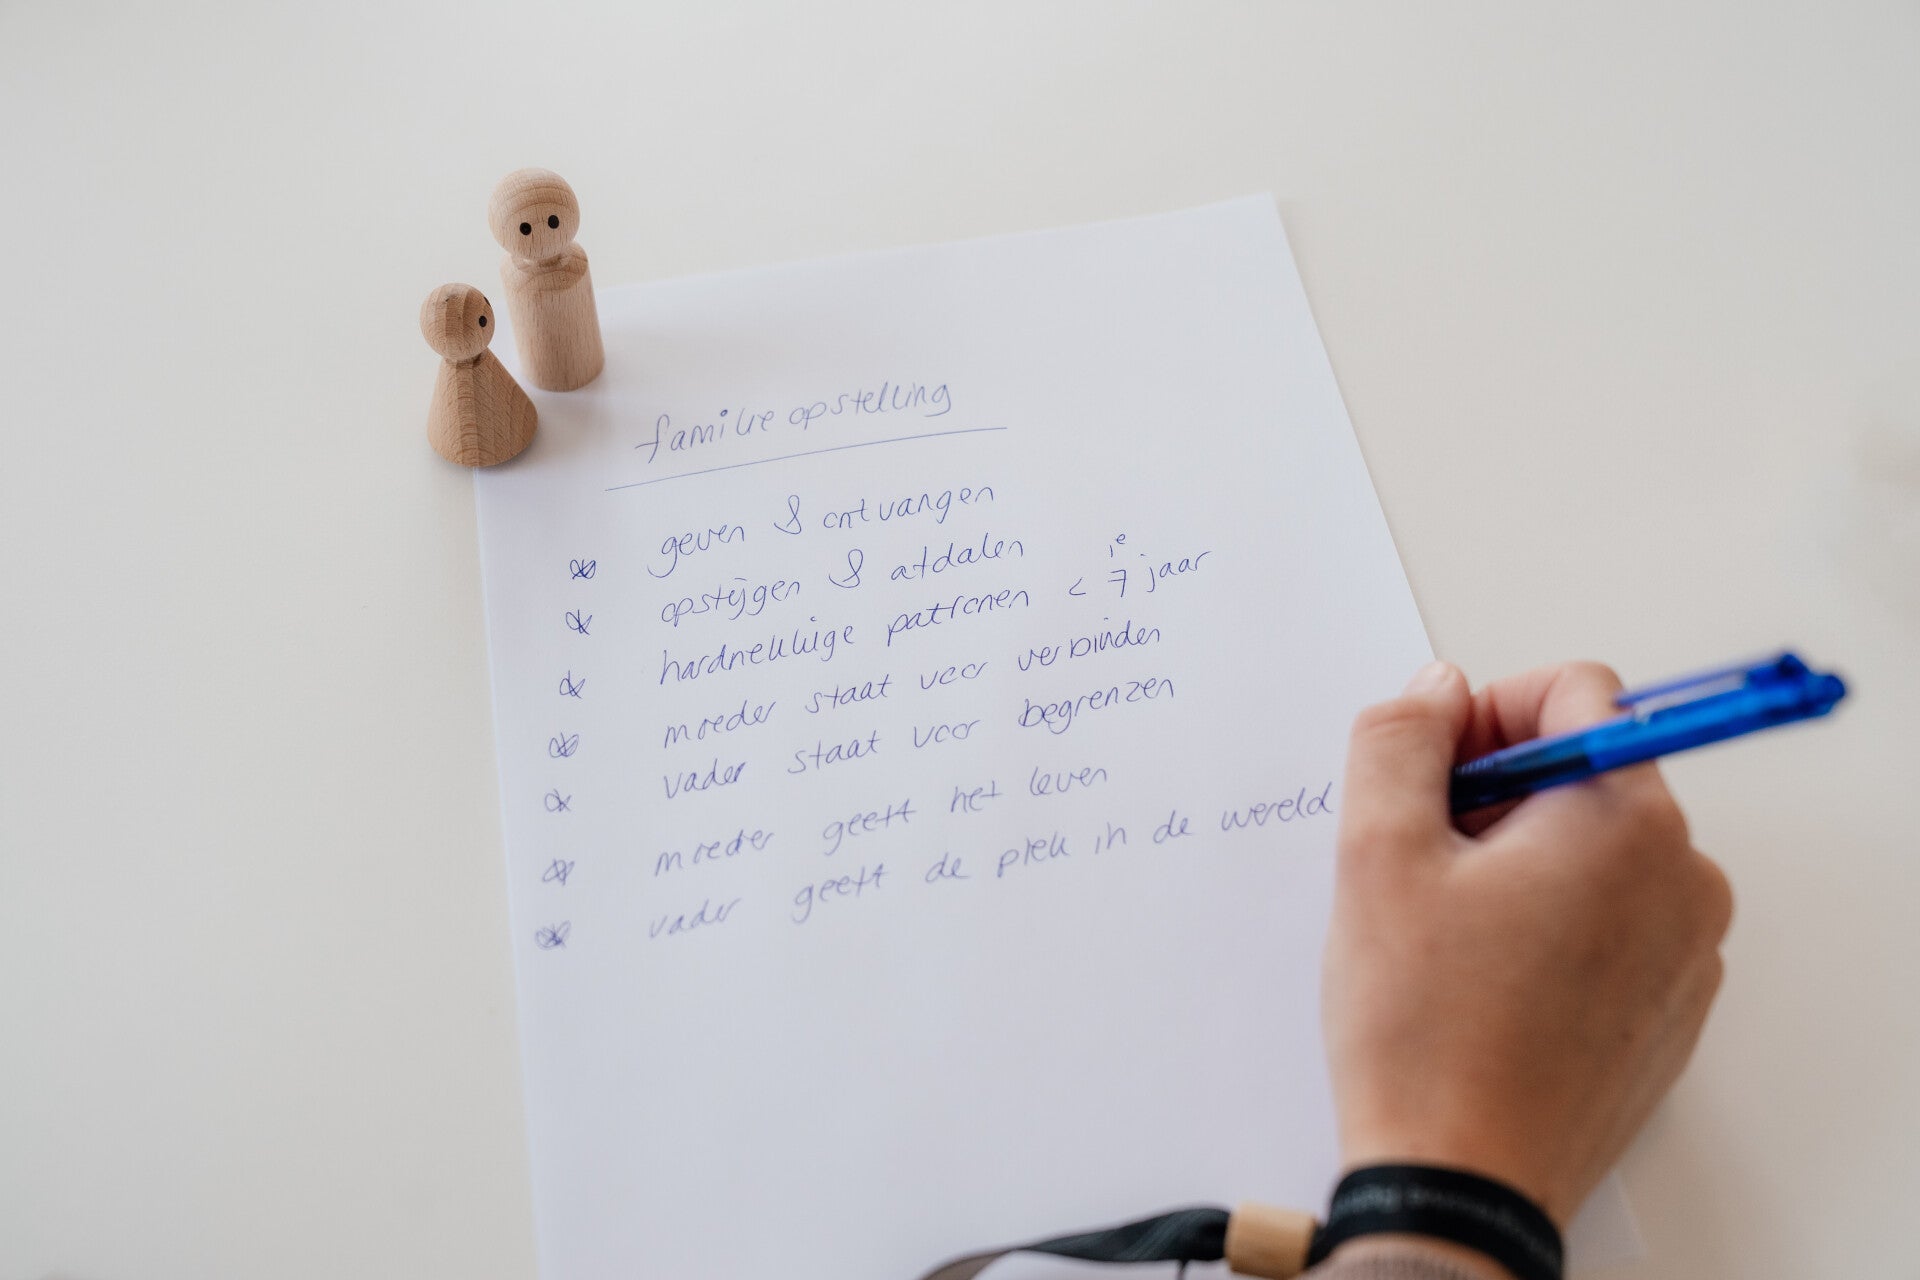 familie opstelling
* geven & ontvangen
* opstijgen & afdalen
* hardnekkige patronen < 1e 7 jaar
* moeder staat voor verbinden
* vader staat voor begrenzen
* moeder geeft het leven
* vader geeft de plek in de wereld